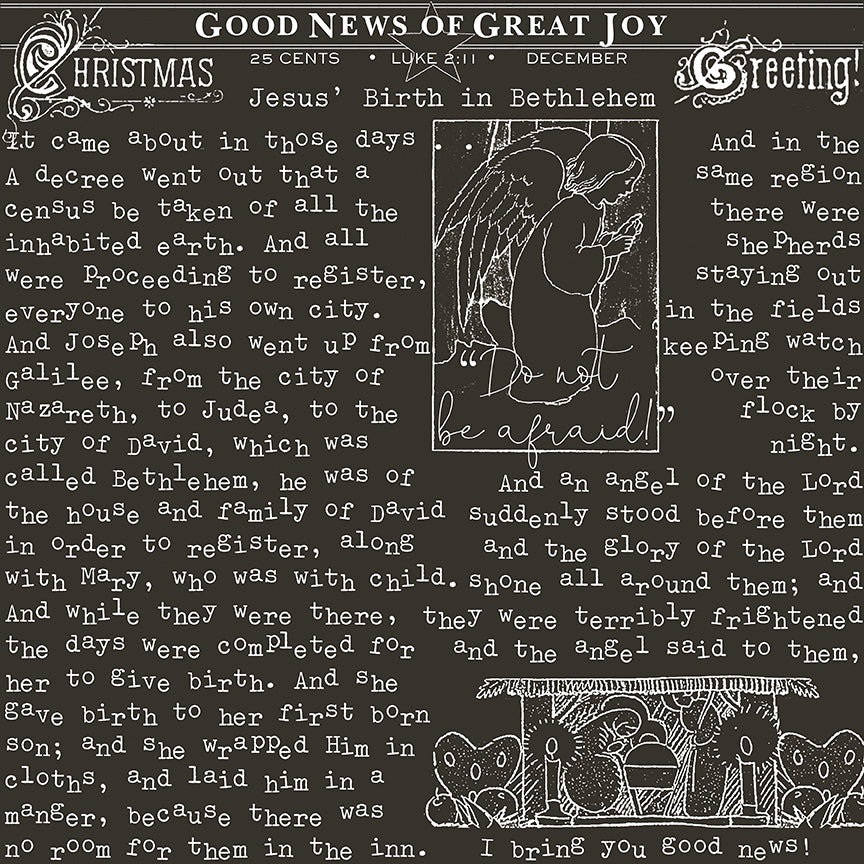 GOOD NEWS OF GREAT JOY
25 CENTS • LUKE 2:11 • DECEMBER
CHRISTMAS
Greeting!
Jesus’ Birth in Bethlehem
It came about in those days
A decree went out that a
census be taken of all the
inhabited earth. And all
were proceeding to register,
everyone to his own city.
And Joseph also went up from
Galilee, from the city of
Nazareth, to Judea, to the
city of David, which was
called Bethlehem, he was of
the house and family of David
in order to register, along
with Mary, who was with child.
And while they were there,
the days were completed for
her to give birth. And she
gave birth to her first born
son; and she wrapped Him in
cloths, and laid him in a
manger, because there was
no room for them in the inn.
“Do not
be afraid!”
And in the
same region
there were
shepherds
staying out
in the fields
keeping watch
over their
flock by
night.
And an angel of the Lord
suddenly stood before them
and the glory of the Lord
shone all around them; and
they were terribly frightened
and the angel said to them,
I bring you good news!